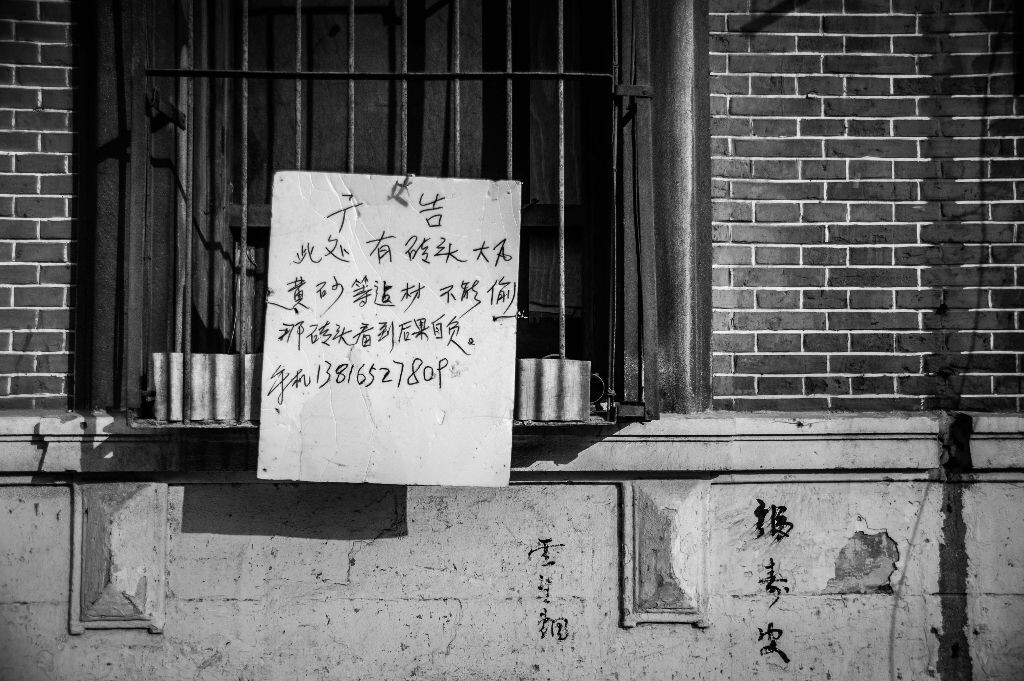 广告
此处 有 砖头 大瓦
黄砂 等造材 不能 偷
那砖头看到后果自负。
手机13816527809